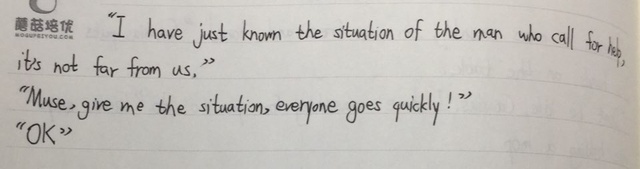 蘑菇培优
MOGUPEIYOU.COM
"I have just known the situation of the man who call for help,
it's not far from us."
"Muse, give me the situation, everyone goes quickly!"
"OK"